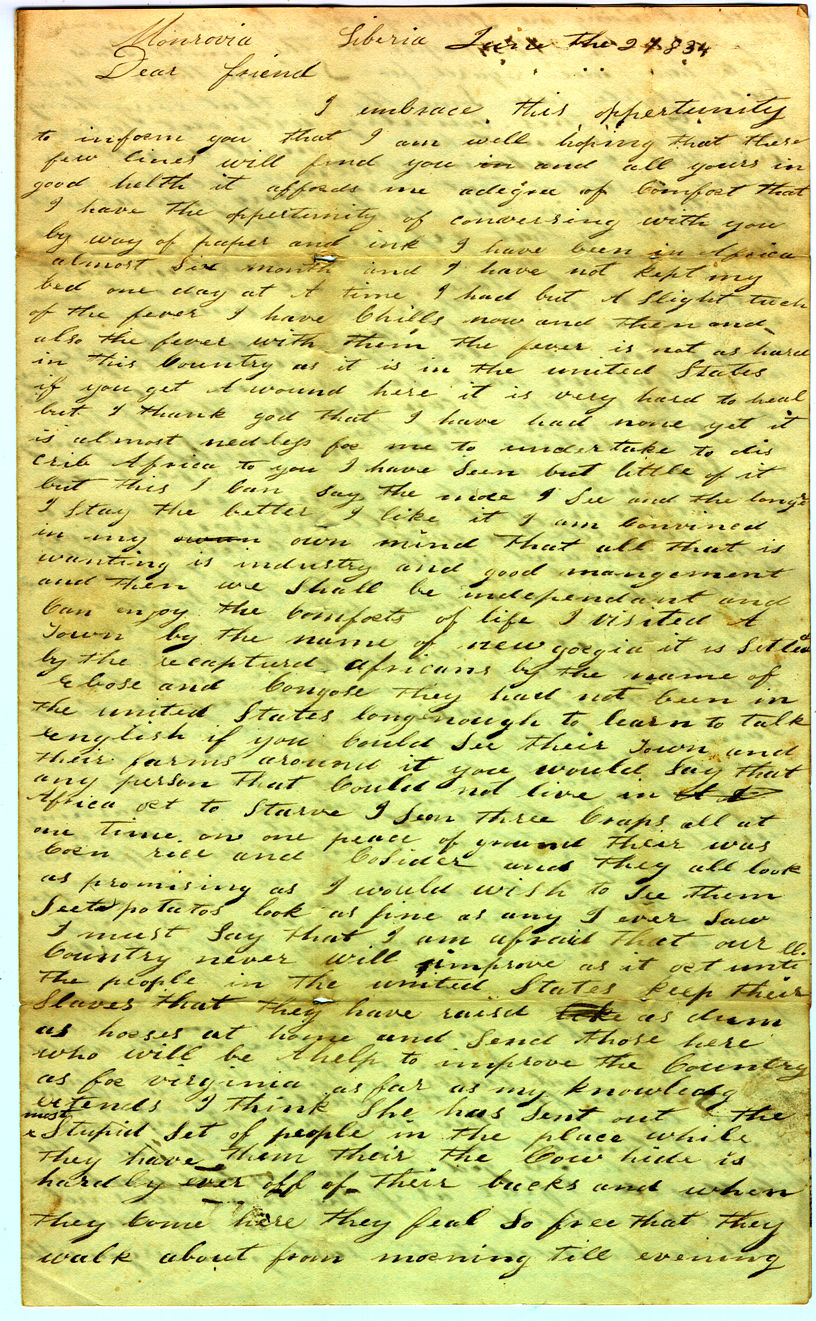 Monrovia Liberia June the 2 1834
Dear friend
I embrace this oppertunity
to inform you that I am well hoping that these
few lines will find you in and all yours in
good helth it affords me adegree of Comfort that
I have the oppertunity of conversing with you
by way of paper and ink I have been in Africa
almost Six month and I have not kept my
bed one day at A time I had but A Slight tuch
of the fever I have Chills now and then and
also the fever with them the fever is not as hard
in this Country as it is in the united States
if you get A wound here it is very hard to heal
but I thank god that I have had none yet it
is almost nedless for me to undertake to dis
crib Africa to you I have Seen but little of it
but this I Can say the more I See and the longr
I Stay the better I like it I am Convined
in my own mind that all that is
wanting is industry and good mangement
and then we Shall be independant and
Can enjoy the Comforts of life I visited A
Town by the name of new gorgia it is Setled
by the recaptured Africans by the name of
Ebose and Congose they had not been in
the united States long nough to learn to talk
english if you Could See their Town and
their farms around it you would Say that
any person that Could not live in
Africa ort to Starve I Seen three Craps all at
one time on one peace of ground their was
Corn rice and Cosider and they all look
as promising as I would wish to See them
Seet potatos look as fine as any I ever Saw
I must Say that I am afraid that our
Country never will improve as it ort untill
the people in the united States keep their
Slaves that they have raisd as dum
as horses at home and Send those here
who will be A help to improve the Country
as for virginia as far as my knowledg
extends I think She has Sent out the
most Stupid Set of people in the place while
they have them their the Cow hide is
hardly ever off of their backs and when
they Come here they feal So free that they
walk about from morning till evening